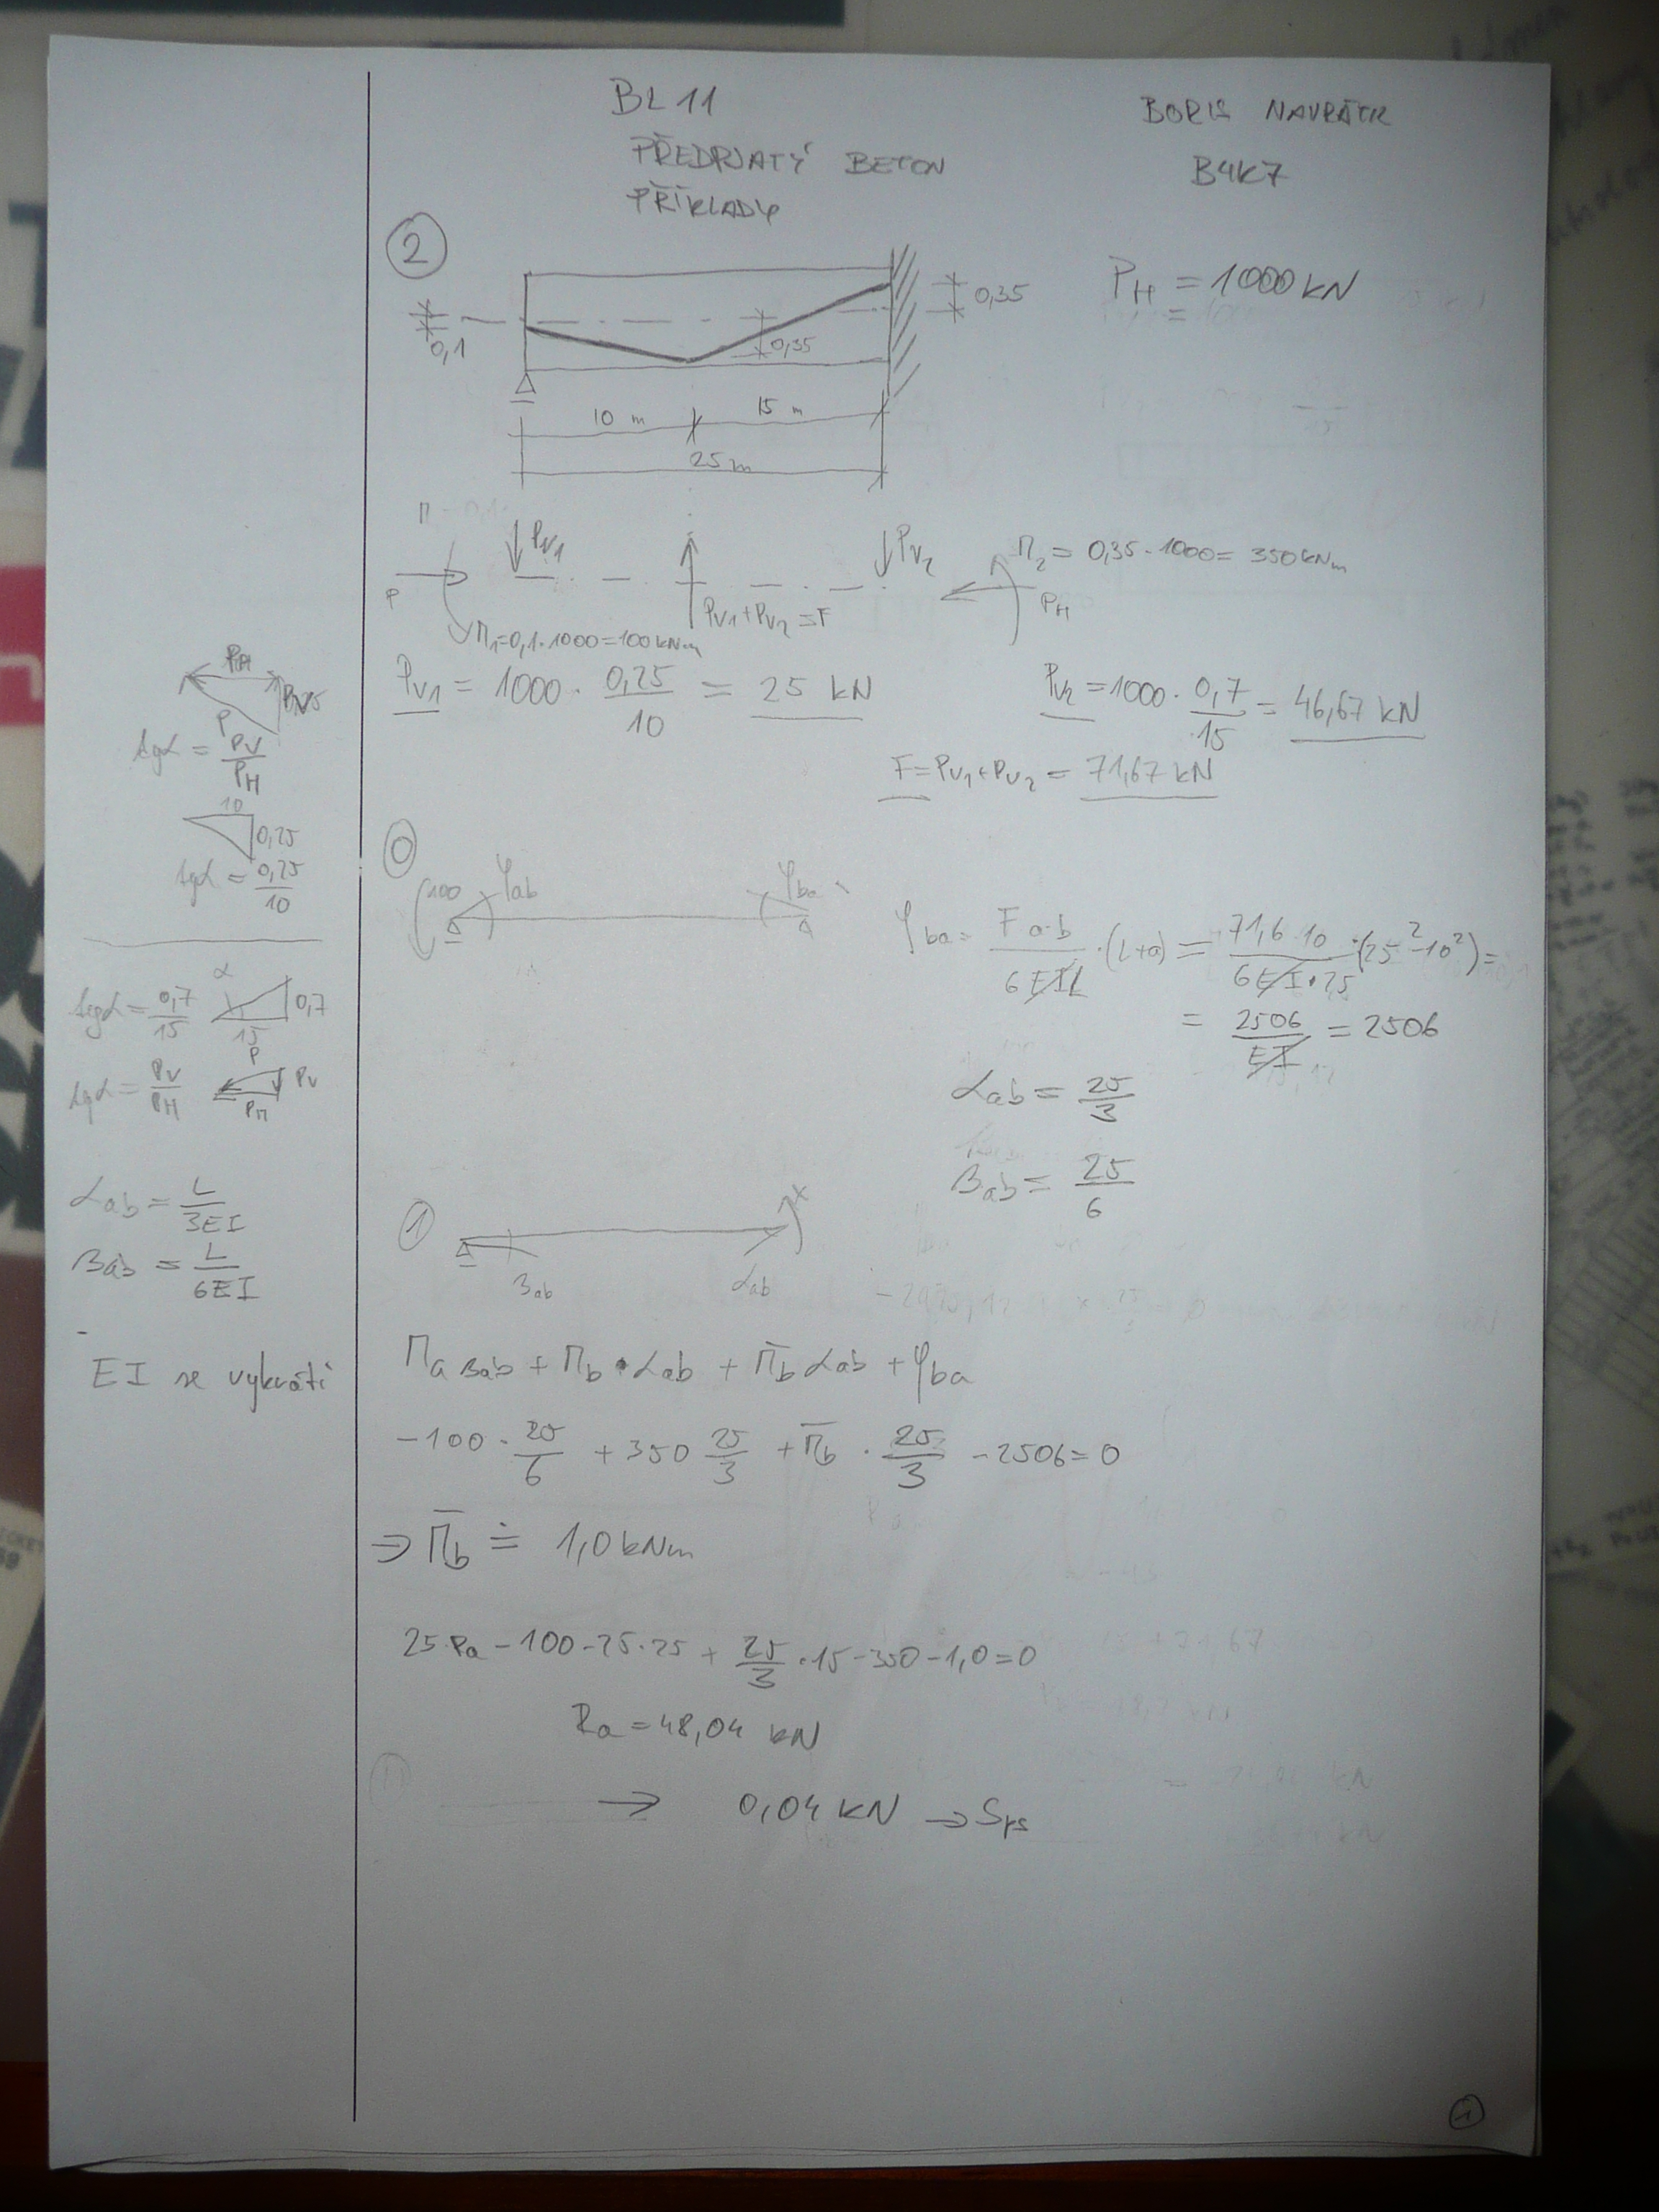 BL 11
BORIS NAVRÁTIL
PŘEDPJATÝ BETON
B4K7
PŘÍKLADY
2
P_H = 1000 kN
0,35
0,1
0,35
10 m
15 m
25 m
P_V1
P_V2
M_2 = 0,35 · 1000 = 350 kNm
P
P_V1 + P_V2 = F
P_H
M_1 = 0,1 · 1000 = 100 kNm
P_V1 = 1000 · 0,25/10 = 25 kN
P_V2 = 1000 · 0,7/15 = 46,67 kN
F = P_V1 + P_V2 = 71,67 kN
P_H
P
tgα = P_V/P_H
10
0,25
tgα = 0,25/10
α
tgα = 0,7/15
0,7
15
P
tgα = P_V/P_H
P_V
P_H
α_ab = L/3EI
β_ab = L/6EI
EI se vykrátí
0
100
φ_ab
φ_ba
φ_ba = F a·b/6EIL · (L+a) = 71,6 · 10/6EI·25 · (25² - 10²) =
= 2506/EI = 2506
α_ab = 25/3
β_ab = 25/6
1
β_ab
α_ab
M_a β_ab + M_b · α_ab + M̄_b α_ab + φ_ba
-100 · 25/6 + 350 25/3 + M̄_b · 25/3 - 2506 = 0
⇒ M̄_b ≐ 1,0 kNm
25·Ra - 100 - 25·25 + 25/3 · 15 - 350 - 1,0 = 0
Ra = 48,04 kN
→ 0,04 kN →
1